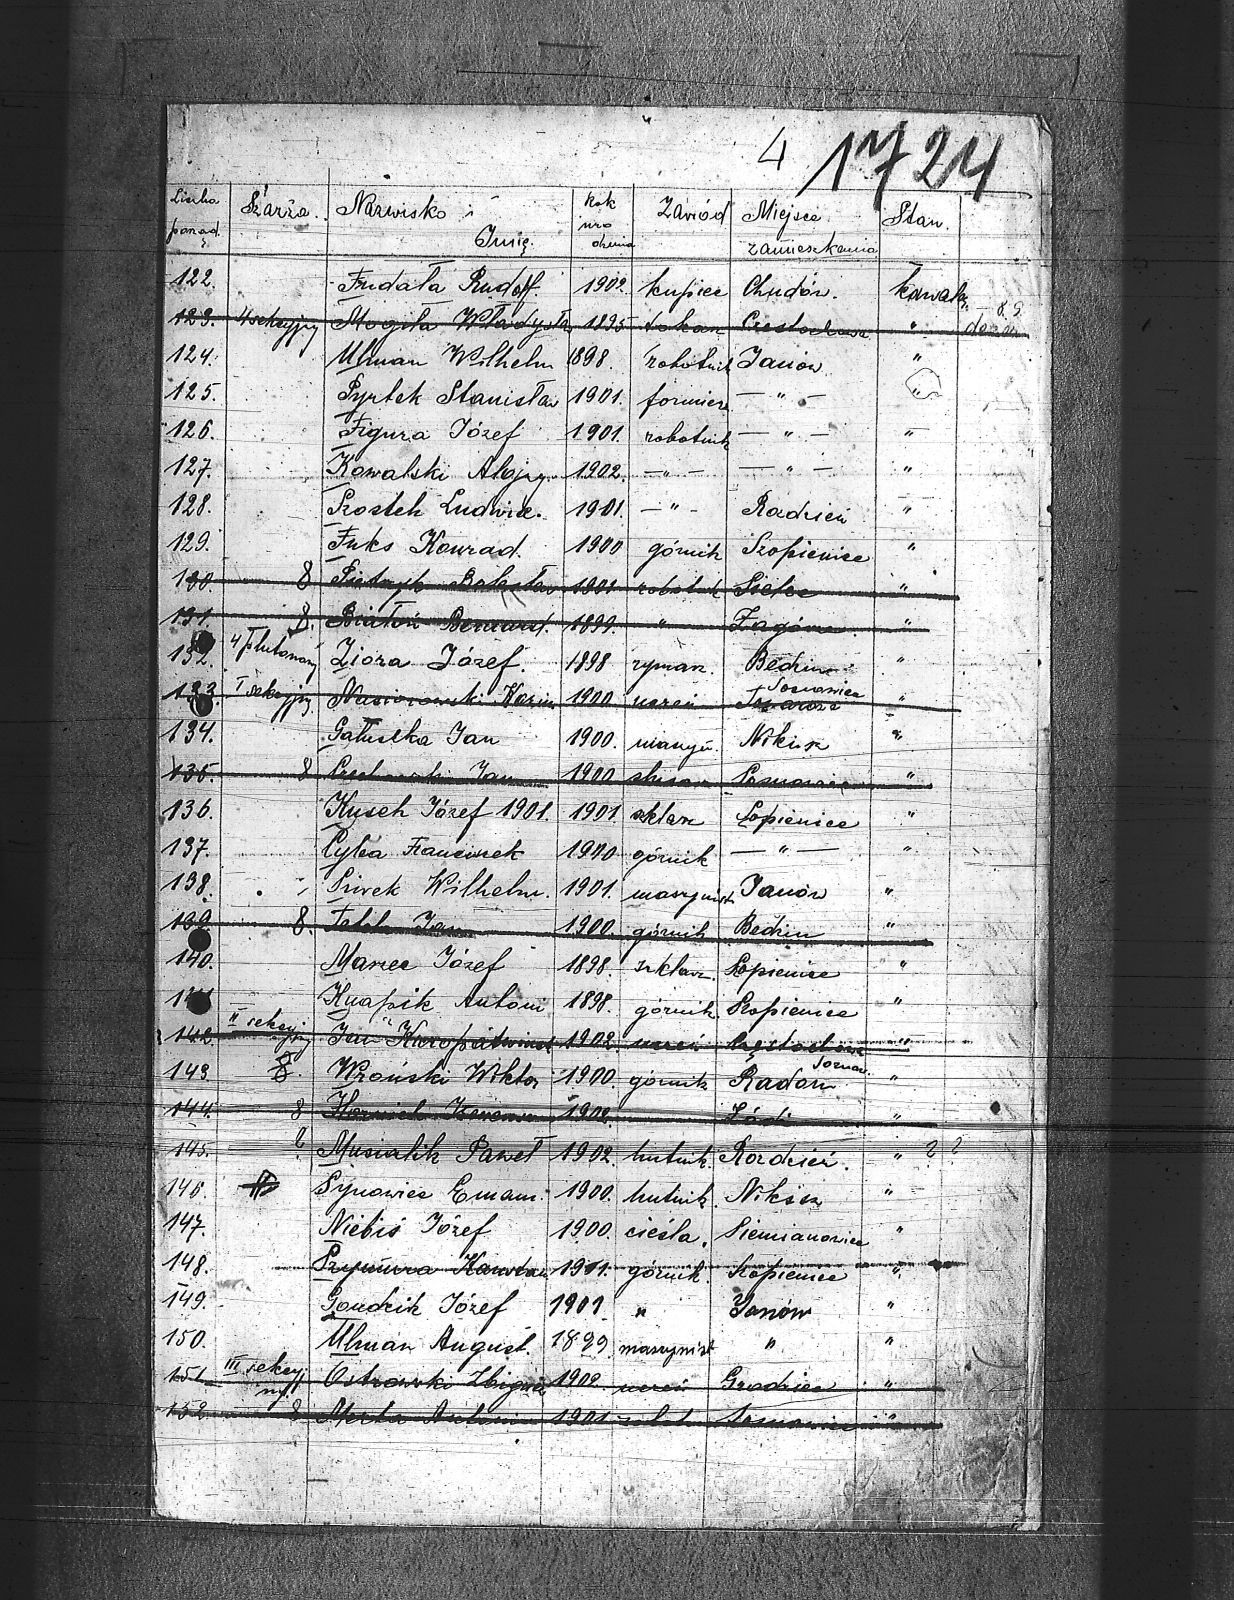 4 1724
Liczba porząd. Szarża. Nazwisko i Imię. Rok uro dzenia Zawód Miejsce zamieszkania Stan.
122. Fudała Rudolf. 1902. kupiec Chudów. kawaler
123. 4 sekcyjny Mogiła Władysław 1895 tokarz Częstochowa "
124. Ulman Wilhelm 1898. robotnik Janów "
125. Pyrtek Stanisław 1901. formierz — " — "
126. Figura Józef 1901. robotnik — " — "
127. Kowalski Alojzy. 1902. — " — — " — "
128. Szostek Ludwik. 1901. — " — "
129. Fuks Konrad. 1900 górnik Szopienice "
130. 8 1901 robotnik Sielce "
131. 8. Białoń Bernard. 1899. " "
132. 4 Plutonowy Ziora Józef. 1898 rymarz. Bedzin "
133. I sekcyjny 1900. uczeń Sosnowice "
134. Gałuszka Jan 1900. Nikisz "
135. 8 Jan 1900 Sosnowiec "
136. Kusch Józef 1901. 1901. szklarz Sopienice "
137. Franciszek 1900 górnik — " — "
138. Wilhelm. 1901. maszynist Janów "
139. 8. Jan 1900. górnik Bedzin "
140. Marzec Józef 1898. szklarz Sopienice "
141. Knapik Antoni 1898. górnik Szopienice "
142. II sekcyjny Jan 1902. uczeń Częstochowa "
143. 8. Wroński Wiktor 1900. górnik Radom Sosnow. "
144. 8 1902. Łódź "
145. Musialik Paweł 1902. hutnik. Rozdzień. " ? ?
146. Synowiec Emanu. 1900. hutnik. Nikisz "
147. Niebiś Józef 1900. cieśla. Siemianowice "
148. 1901. górnik Szopienice "
149. Gondzik Józef 1901. " Janów "
150. Ulman August. 1899. maszynist " "
151. III sekcyjny. Ostrowski Zbigniew 1902. uczeń Grodziec "
152. 8 1901. Sosnowiec "